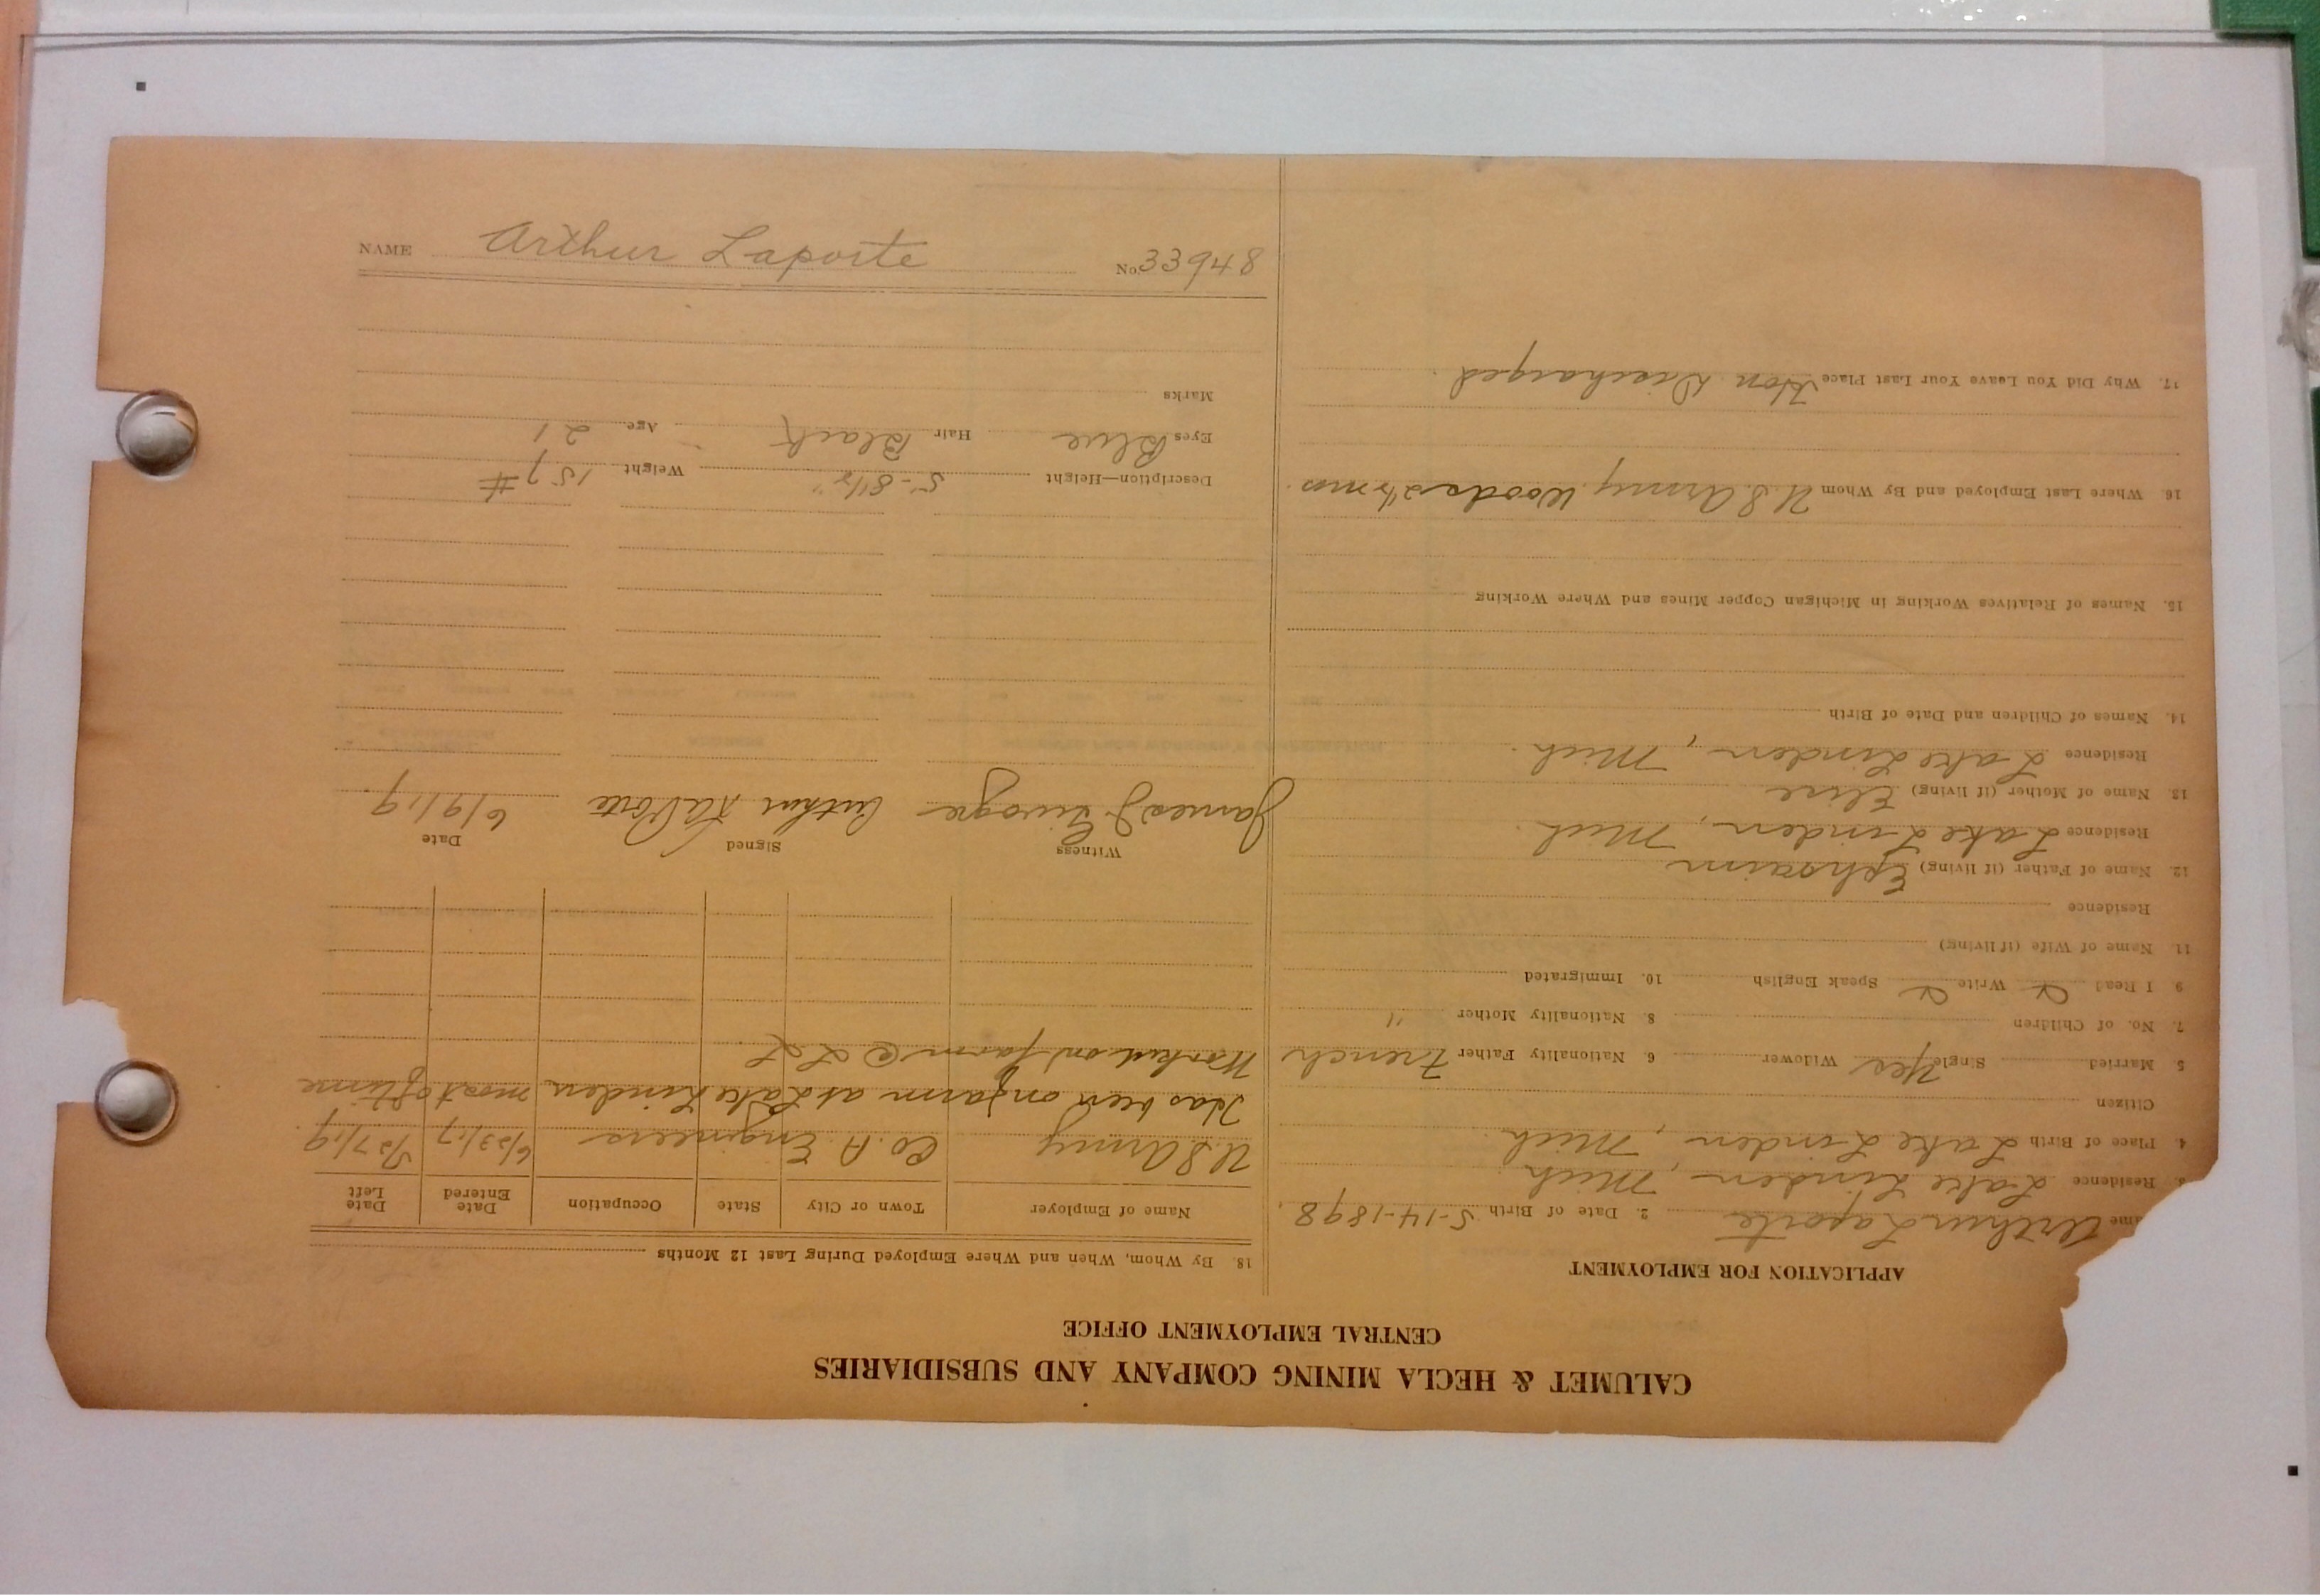 CALUMET & HECLA MINING COMPANY AND SUBSIDIARIES
CENTRAL EMPLOYMENT OFFICE
APPLICATION FOR EMPLOYMENT
me Arthur Laporte 2. Date of Birth 5-14-1898
3. Residence Lake Linden, Mich
4. Place of Birth Lake Linden, Mich.
Citizen
5 Married Single Yes Widower 6. Nationality Father French
7. No. of Children 8. Nationality Mother "
9. I Read Write Speak English 10. Immigrated
11. Name of Wife (if living)
Residence
12. Name of Father (if living) Ephraim
Residence Lake Linden, Mich.
13. Name of Mother (if living) Elise
Residence Lake Linden, Mich.
14. Names of Children and Date of Birth
15. Names of Relatives Working in Michigan Copper Mines and Where Working
16. Where Last Employed and By Whom U.S. Army. Woods 2½ mos.
17. Why Did You Leave Your Last Place Hon Discharged.
18. By Whom, When and Where Employed During Last 12 Months
Name of Employer Town or City State Occupation Date Entered Date Left
U.S Army Co. A Engineers 6/23/17 5/27/19.
Has been on farm at Lake Linden most of time
Worked on farm @ LL
Witness Signed Date
James J Arthur LaPorte 6/9/19.
Description—Height 5'-8½" Weight 157#
Eyes Blue Hair Black Age 21
Marks
NAME Arthur Laporte No. 33948